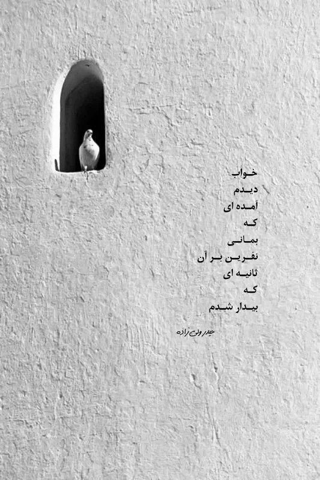 خواب
دیدم
آمده ای
که
بمانی
نفرین بر آن
ثانیه ای
که
بیدار شدم